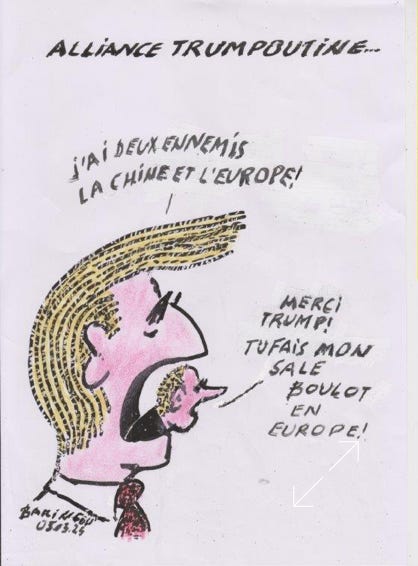 ALLIANCE TRUMPOUTINE...
J'AI DEUX ENNEMIS
LA CHINE ET L'EUROPE!
MERCI
TRUMP!
TU FAIS MON
SALE
BOULOT
EN
EUROPE!